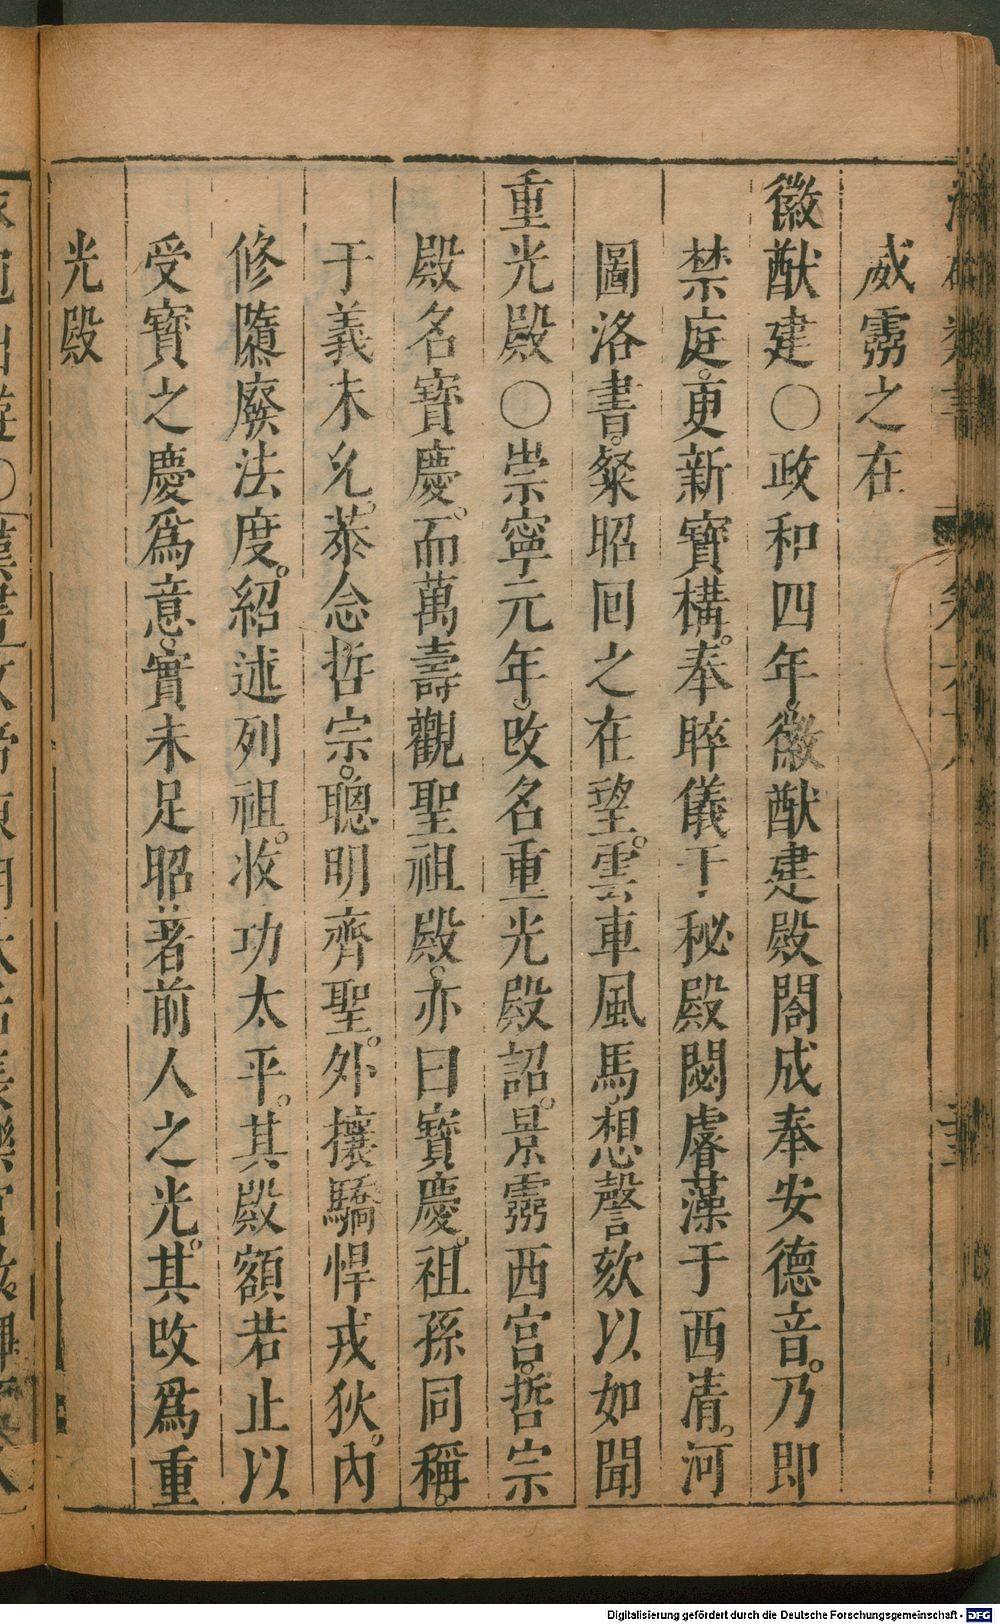 威靈之在
徽猷建〇政和四年。徽猷建殿閣成奉安德音。乃即
禁庭。更新寶構。奉睟儀于秘殿閟睿藻于西清。河
圖洛書。粲昭回之在望。雲車風馬。想謦欬以如聞
重光殿〇崇寧元年。改名重光殿詔。景靈西宮。哲宗
殿名寶慶。而萬壽觀聖祖殿。亦曰寶慶。祖孫同稱。
于義未允。恭念哲宗。聰明齊聖。外攘驕悍戎狄。內
修隳廢法度。紹述列祖。收功太平。其殿額若止以
受寶之慶爲意。實未足昭著前人之光。其改爲重
光殿
Digitalisierung gefördert durch die Deutsche Forschungsgemeinschaft - DFG